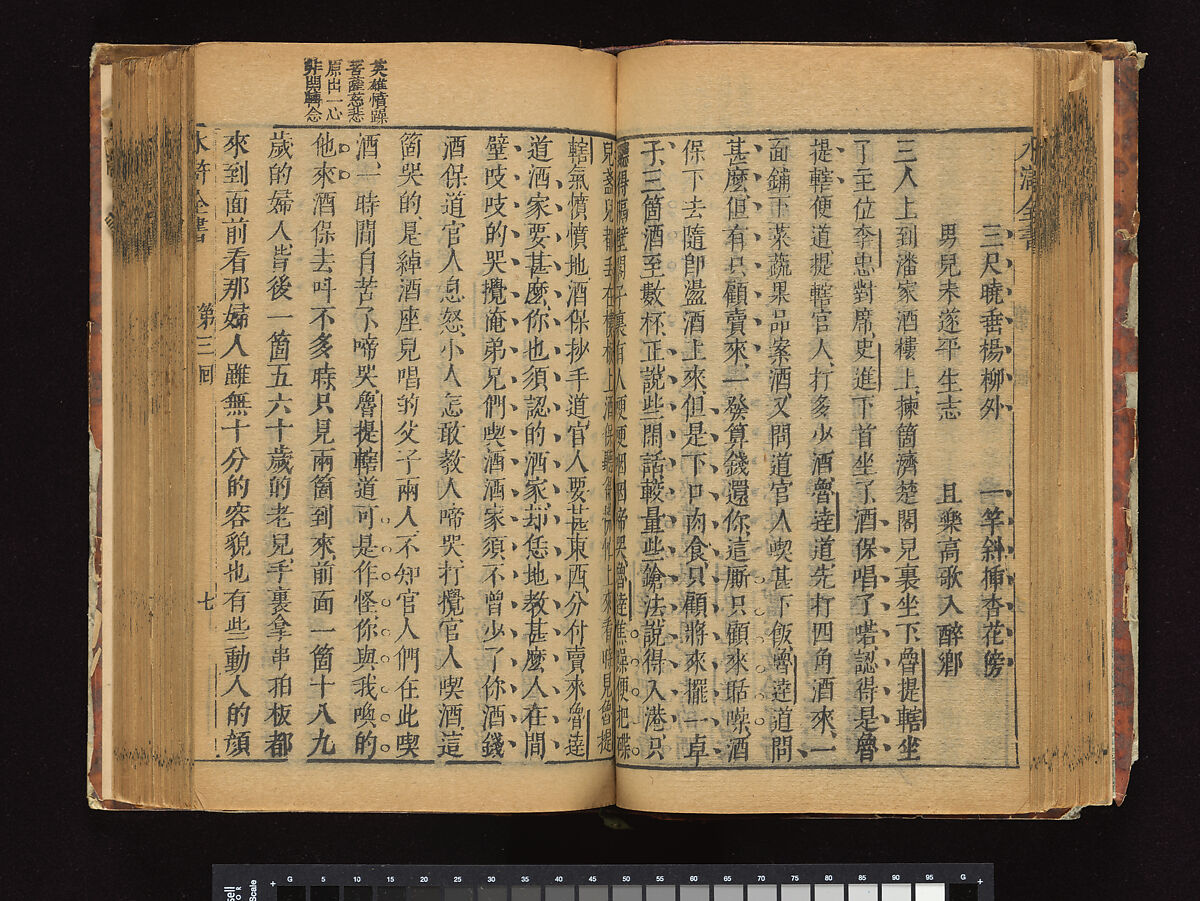 水滸全書
三尺曉垂楊柳外　一竿斜揷杏花傍
男兒未遂平生志　且樂高歌入醉鄉
三人上到潘家酒樓上揀箇濟楚閣兒裏坐下魯提轄坐
了主位李忠對席史進下首坐了酒保唱了喏認得是魯
提轄便道提轄官人打多少酒魯達道先打四角酒來一
面鋪下菜蔬果品案酒又問道官人喫甚下飯魯達道問
甚麼但有只顧賣來一發算錢還你這厮只顧來聒噪酒
保下去隨卽盪酒上來但是下口肉食只顧將來擺一卓
子三箇酒至數杯正說些閑話較量些鎗法說得入港只
聽得隔壁閣子裏有人哽哽咽咽啼哭魯達焦躁便把碟
兒盞兒都丟在樓板上酒保聽得慌忙上來看時見魯提
轄氣憤憤地酒保抄手道官人要甚東西分付賣來魯達
道洒家要甚麼你也須認的洒家却恁地教甚麼人在間
壁吱吱的哭攪俺弟兄們喫酒洒家須不曾少了你酒錢
酒保道官人息怒小人怎敢教人啼哭打攪官人喫酒這
箇哭的是綽酒座兒唱的父子兩人不知官人們在此喫
酒一時間自苦了啼哭魯提轄道可是作怪你與我喚的
他來酒保去叫不多時只見兩箇到來前面一箇十八九
歲的婦人背後一箇五六十歲的老兒手裏拿串拍板都
來到面前看那婦人雖無十分的容貌也有些動人的顏
英雄憤躁
菩薩慈悲
原出一心
非関轉念
水滸全書　第三囘　七